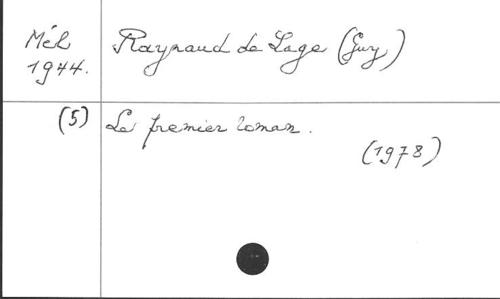 Mél Raynaud de Lage (Guy)
1944.
(5) Le premier roman.
(1978)